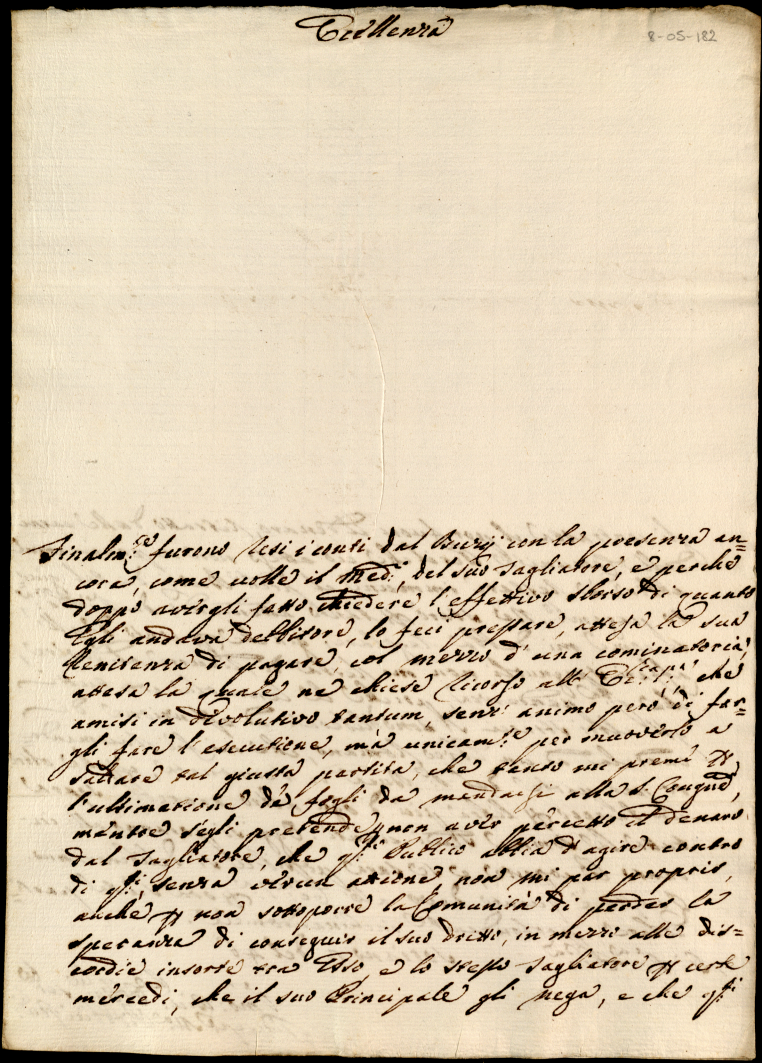 Eccellenza
8-05-182
Finalm.te furono resi i conti dal Burgj con la presenza an=
cora, come volle il med.o, del suo Tagliatore, e perche
doppo avergli fatto chiedere l'effettivo sborso di quanto
Egli andava debbitore, lo feci pressare, attesa la sua
renitenza di pagare, col mezzo d'una cominatoria,
attesa la quale ne chiese ricorso all' che
amisi in devolutivo tantum, senz' animo però di far=
gli fare l'esecutione, mà unicam.te per muoverlo a
saldare tal giusta partita, che tanto mi preme p
l'ultimatione de fogli da mandarsi alla S. Congne,
mentre s'egli pretende, non aver percetto il denaro
dal Tagliatore, che q.to Publico abbia d'agire contro
di q.to, senza veruna attione non mi par proprio,
anche p non sottoporre la Comunità di perder la
speranza di conseguir il suo dritto, in mezzo alle dis=
cordie insorte tra Esso, e lo stesso Tagliatore p certe
mercedi, che il suo Principale gli nega, e che q.ti